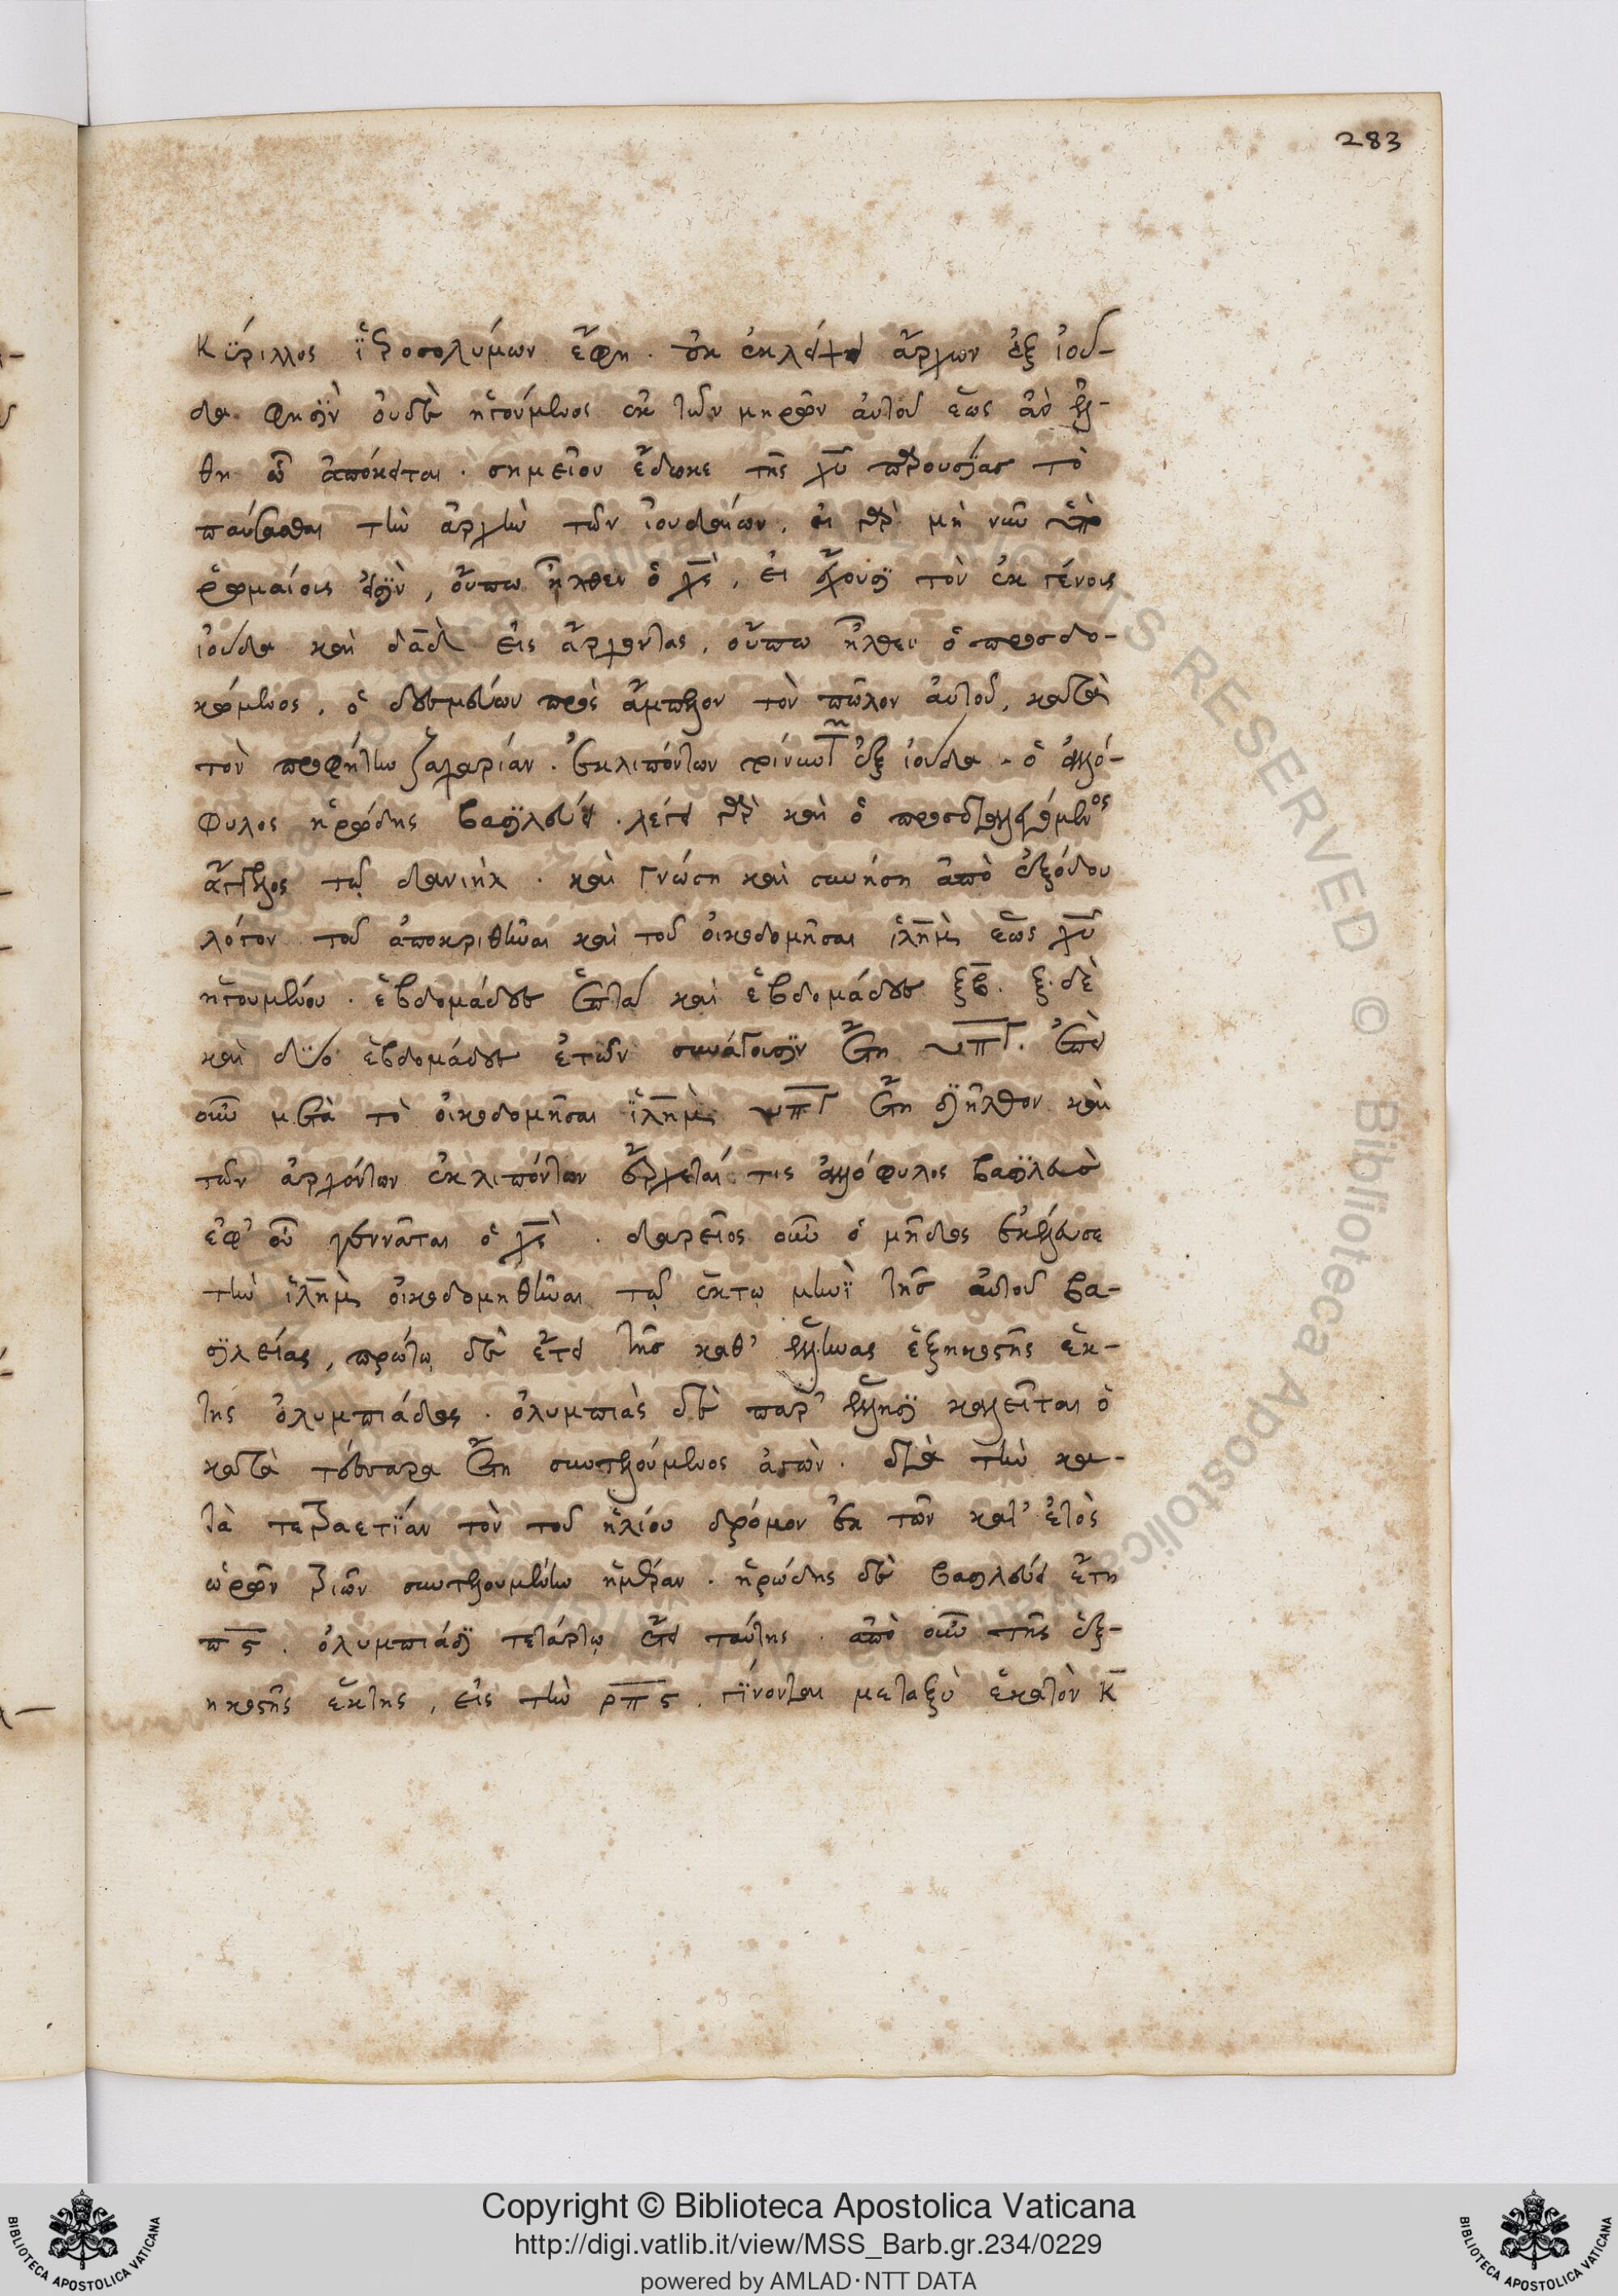 283
Κύριλλος ἱεροσολύμων ἔφη. οὐκ ἐκλείψει ἄρχων ἐξ ἰού-
δα φησὶν οὐδὲ ἡγούμενος ἐκ τῶν μηρῶν αὐτοῦ ἕως ἂν ἔλ-
θῃ ᾧ ἀπόκειται. σημεῖον ἔδωκε τῆς χ̅υ̅ παρουσίας τὸ
παύσασθαι τὴν ἀρχὴν τῶν ἰουδαίων. εἰ γὰρ μὴ νῦν ὑπὸ
ῥωμαίοις εἰσὶν, οὔπω ἦλθεν ὁ χ̅ς̅, εἰ ἔχουσι τὸν ἐκ γένους
ἰούδα καὶ δ̅α̅δ̅ εἰς ἄρχοντας, οὔπω ἦλθεν ὁ προσδο-
κώμενος. ὁ δεσμεύων πρὸς ἄμπελον τὸν πῶλον αὐτοῦ, κατὰ
τὸν προφήτην ζαχαρίαν. ἐκλιπόντων ἐξ ἰούδα. ὁ ἀλλό-
φυλος ἡρώδης βασιλεύει. λέγει γὰρ καὶ ὁ προσδιαλεγόμενος
ἄγγελος τῷ δανιὴλ. καὶ γνώσῃ καὶ συνήσῃ ἀπὸ ἐξόδου
λόγου τοῦ ἀποκριθῆναι καὶ τοῦ οἰκοδομῆσαι ἱλ̅η̅μ̅ ἕως χ̅υ̅
ἡγουμένου. ἑβδομάδες ἑπτὰ καὶ ἑβδομάδες ξ̅β̅. ξ. δὲ
καὶ δύο ἑβδομάδες ἐτῶν συνάγουσιν ἔτη υ̅π̅γ̅. ἐπεὶ
οὖν μετὰ τὸ οἰκοδομῆσαι ἱλ̅η̅μ̅ υ̅π̅γ̅ ἔτη διῆλθον καὶ
τῶν ἀρχόντων ἐκλιπόντων ἔρχεταί τις ἀλλόφυλος βασιλεὺς
ἐφ' οὗ γεννᾶται ὁ χ̅ς̅. δαρεῖος οὖν ὁ μῆδος ἐκέλευσε
τὴν ἱλ̅η̅μ̅ οἰκοδομηθῆναι τῷ ἕκτῳ μηνὶ τῆς αὐτοῦ βα-
σιλείας, πρώτῳ δὲ ἔτει τῆς καθ' ἕλληνας ἑξηκοστῆς ἕκ-
της ὀλυμπιάδος. ὀλυμπιὰς δὲ παρ' ἕλλησι καλεῖται ὁ
κατὰ τέσσαρα ἔτη συντελούμενος ἀγών. διὰ τὴν κα-
τὰ τετραετίαν τὸν τοῦ ἡλίου δρόμον ἐκ τῶν κατ' ἔτος
ὡρῶν τριῶν συντελουμένην ἡμέραν. ἡρώδης δὲ βασιλεύει ἔτη
π̅ς̅. ὀλυμπιάδι τετάρτῳ ἔτει ταύτης. ἀπὸ οὖν τῆς ἑξ-
ηκοστῆς ἕκτης, εἰς τὴν ρ̅π̅ς̅. γίνονται μεταξὺ ἑκατὸν κ̅
Copyright © Biblioteca Apostolica Vaticana
http://digi.vatlib.it/view/MSS_Barb.gr.234/0229
powered by AMLAD·NTT DATA